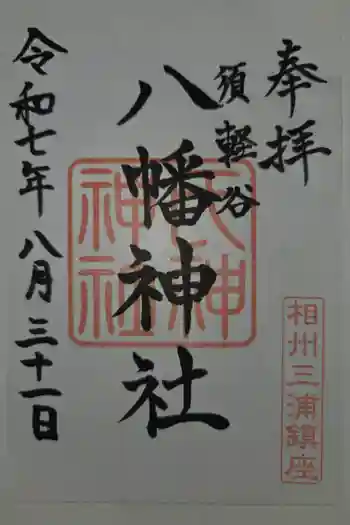 奉拝
須軽谷
八幡神社
令和七年八月三十一日
天神
神社
相州三浦鎮座